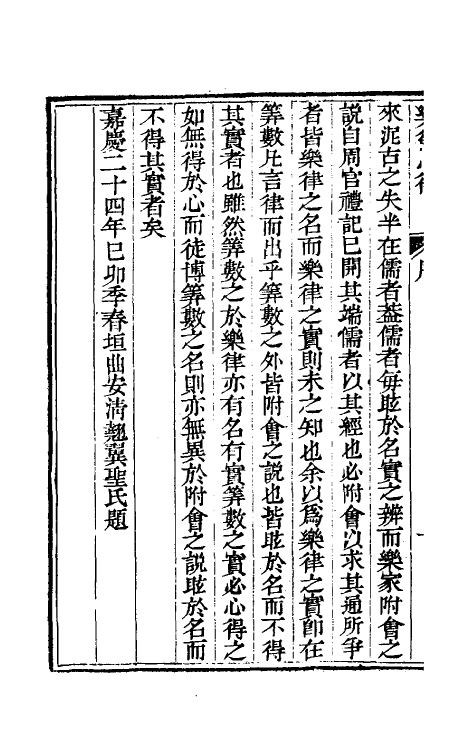 來泥古之失半在儒者葢儒者每眩於名實之辨而樂家附會之
說自周官禮記已開其端儒者以其經也必附會以求其通所爭
者皆樂律之名而樂律之實則未之知也余以爲樂律之實卽在
筭數凡言律而出乎筭數之外皆附會之說也皆眩於名而不得
其實者也雖然筭數之於樂律亦有名有實筭數之實必心得之
如無得於心而徒博筭數之名則亦無異於附會之說眩於名而
不得其實者矣
嘉慶二十四年已卯季春垣曲安淸翹翼聖氏題